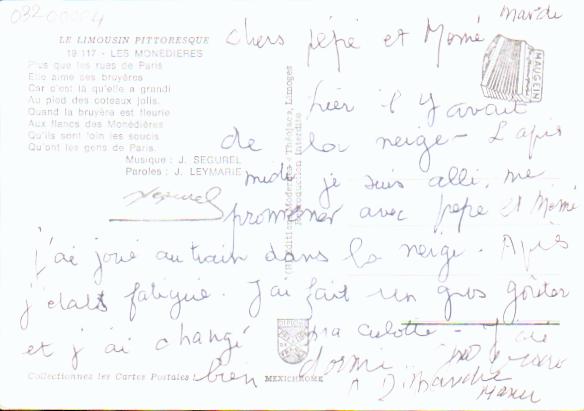 03200004
LE LIMOUSIN PITTORESQUE
19.117 - LES MONEDIERES
Plus que les rues de Paris
Elle aime ses bruyères
Car c'est là qu'elle a grandi
Au pied des coteaux jolis.
Quand la bruyère est fleurie
Aux flancs des Monédières
Qu'ils sont loin les soucis
Qu'ont les gens de Paris.
Musique : J. SEGUREL
Paroles : J. LEYMARIE
Segurel
MAUGEIN
Mardi
chers pépé et Momé
hier il y avait
de la neige - L'apis
midi je suis alli me
promener avec pepe et Momé
j'ai joué au train dans la neige. Apis
j'etais fatigue. J'ai fait un gros goûter
et j'ai changé ma culotte
bien dormi
A Dimanche
Manu
Théojac, Limoges
Reproduction Interdite
Collectionnez les Cartes Postales !
MEXICHROME